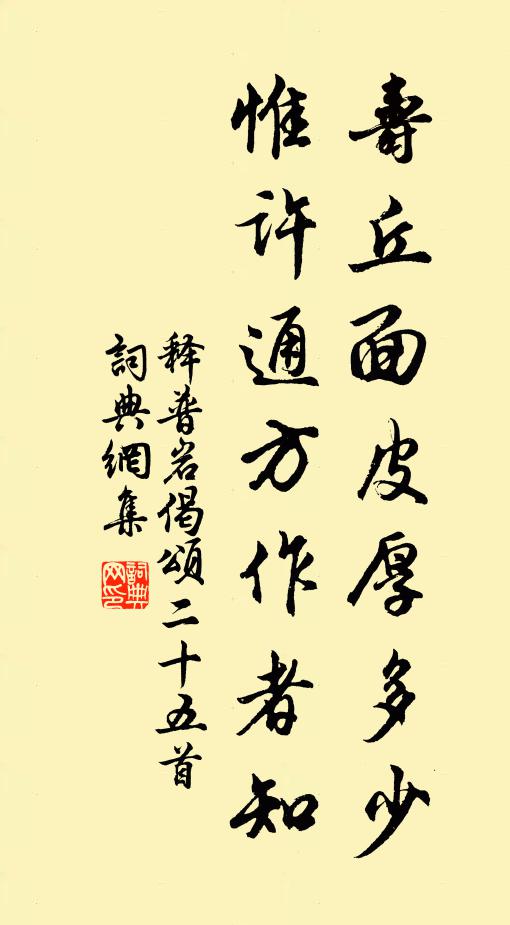 壽丘面皮厚多少
惟许通方作者知
释普岩偈頌二十五首
詞典網集
詞典网印